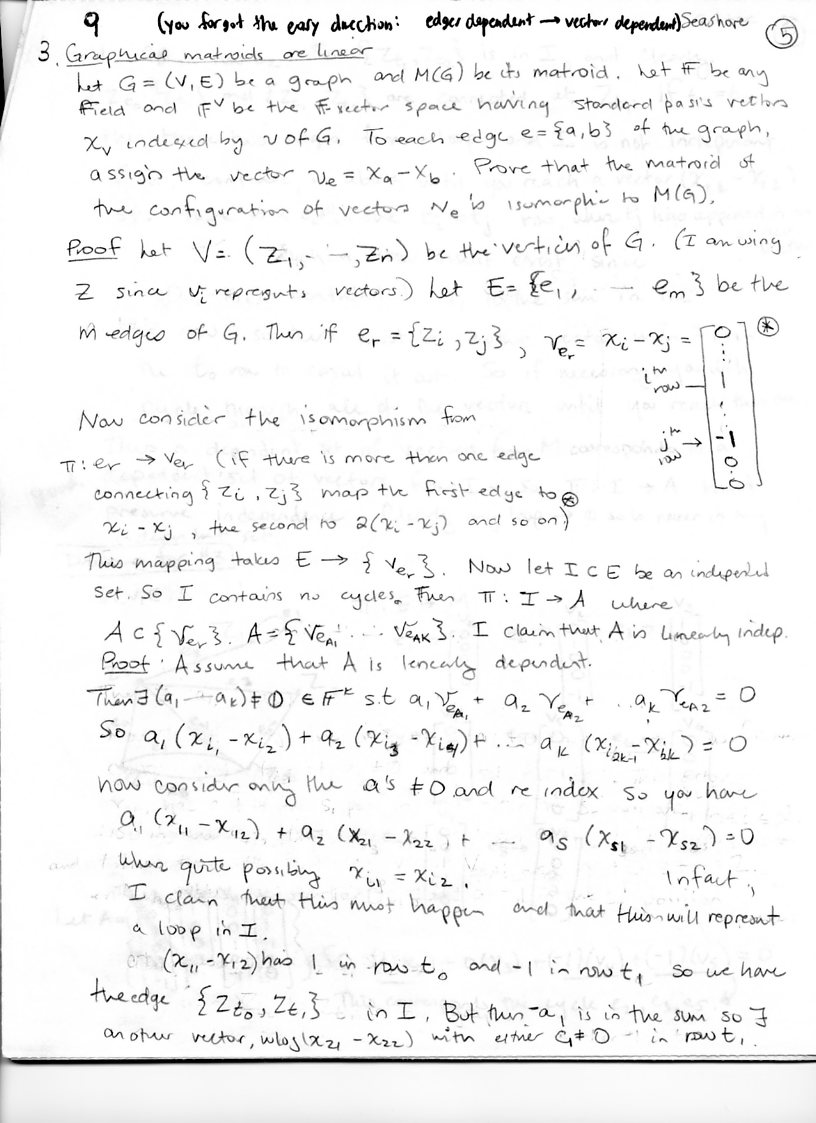 9 (you forgot the easy direction: edges dependent → vectors dependent) Seashore
5
3. Graphical matroids are linear
Let G = (V, E) be a graph and M(G) be its matroid. Let F be any
Field and F^V be the F-vector space having standard basis vectors
x_v indexed by v of G. To each edge e = {a, b} of the graph,
assign the vector v_e = x_a - x_b. Prove that the matroid of
the configuration of vectors v_e is isomorphic to M(G).
Proof Let V = (z_1, - - -, z_n) be the vertices of G. (I am using
Z since v_i represents vectors.) Let E = {e_1, ... e_m} be the
m edges of G. Then if e_r = {z_i, z_j}, v_{e_r} = x_i - x_j = [0 ⋮ 1 ⋮ -1 0 ⋮ 0] ⊛
i^th row
j^th row →
Now consider the isomorphism from
π: e_r → v_{e_r} (if there is more then one edge
connecting {z_i, z_j} map the first edge to ⊛
x_i - x_j, the second to 2(x_i - x_j) and so on)
This mapping takes E → {v_{e_r}}. Now let I ⊂ E be an independent
set. So I contains no cycles. Then π: I → A where
A ⊂ {v_{e_r}}. A = {v_{e_{A1}} ... v_{e_{AK}}}. I claim that A is linearly indep.
Proof: Assume that A is linearly dependent.
Then ∃ (a_1 - - a_k) ≠ 0 ∈ F^k s.t a_1 v_{e_{A1}} + a_2 v_{e_{A2}} + .. a_k v_{e_{A2}} = 0
So a_1 (x_{i_1} - x_{i_2}) + a_2 (x_{i_3} - x_{i_4}) + ... a_k (x_{i_{2k-1}} - x_{i_{2k}}) = 0
now consider only the a's ≠ 0 and re index so you have
a_1 (x_{11} - x_{12}) + a_2 (x_{21} - x_{22}) + ... a_s (x_{s1} - x_{s2}) = 0
where quite possibly x_{i1} = x_{i2}. In fact,
I claim that this must happen and that this will represent
a loop in I.
(x_{11} - x_{12}) has 1 in row t_0 and -1 in row t_1 so we have
the edge {z_{t_0}, z_{t_1}} in I. But then -a_1 is in the sum so ∃
another vector, wlog (x_{21} - x_{22}) with either ≠ 0 in row t_1.